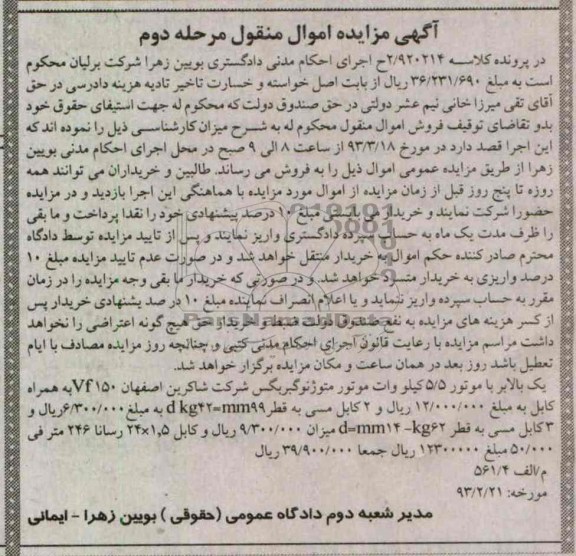 آگهی مزایده اموال منقول مرحله دوم
در پرونده کلاسه ۲/۹۲۰۲۱۴ح اجرای احکام مدنی دادگستری بویین زهرا شرکت برلیان محکوم
است به مبلغ ۳۶/۲۳۱/۶۹۰ ریال از بابت اصل خواسته و خسارت تاخیر تادیه هزینه دادرسی در حق
آقای تقی میرزا خانی نیم عشر دولتی در حق صندوق دولت که محکوم له جهت استیفای حقوق خود
بدو تقاضای توقیف فروش اموال منقول محکوم له به شرح میزان کارشناسی ذیل را نموده اند که
این اجرا قصد دارد در مورخ ۹۳/۳/۱۸ از ساعت ۸ الی ۹ صبح در محل اجرای احکام مدنی بویین
زهرا از طریق مزایده عمومی اموال ذیل را به فروش می رساند. طالبین و خریداران می توانند همه
روزه تا پنج روز قبل از زمان مزایده از اموال مورد مزایده با هماهنگی این اجرا بازدید و در مزایده
حضورا شرکت نمایند و خریدار می بایستی مبلغ ۱۰ درصد پیشنهادی خود را نقدا پرداخت و ما بقی
را ظرف مدت یک ماه به حساب سپرده دادگستری واریز نمایند و پس از تایید مزایده توسط دادگاه
محترم صادر کننده حکم اموال به خریدار منتقل خواهد شد و در صورت عدم تایید مزایده مبلغ ۱۰
درصد واریزی به خریدار مسترد خواهد شد. و در صورتی که خریدار ما بقی وجه مزایده را در زمان
مقرر به حساب سپرده واریز ننماید و یا اعلام انصراف نماینده مبلغ ۱۰ در صد پشنهادی خریدار پس
از کسر هزینه های مزایده به نفع صندوق دولت ضبط و خریدار حق هیچ گونه اعتراضی را نخواهد
داشت مراسم مزایده با رعایت قانون اجرای احکام مدنی کتبی و چنانچه روز مزایده مصادف با ایام
تعطیل باشد روز بعد در همان ساعت و مکان مزایده برگزار خواهد شد.
یک بالابر با موتور ۵/۵ کیلو وات موتور متوژنوگیربگس شرکت شاکرین اصفهان Vf۱۵۰ به همراه
کابل به مبلغ ۱۲/۰۰۰/۰۰۰ ریال و ۲ کابل مسی به قطر d kg۴۲=mm۹۹ به مبلغ ۶/۳۰۰/۰۰۰ریال و
۳ کابل مسی به قطر d=mm۱۴ -kg۶۲ میزان ۹/۳۰۰/۰۰۰ ریال و کابل ۲۴×۱,۵ رسانا ۲۴۶ متر فی
۵۰/۰۰۰ مبلغ ۱۲۳۰۰۰۰۰ ریال جمعا ۳۹/۹۰۰/۰۰۰ ریال
م/الف ۵۶۱/۴
مورخه: ۹۳/۲/۲۱
مدیر شعبه دوم دادگاه عمومی (حقوقی) بویین زهرا - ایمانی